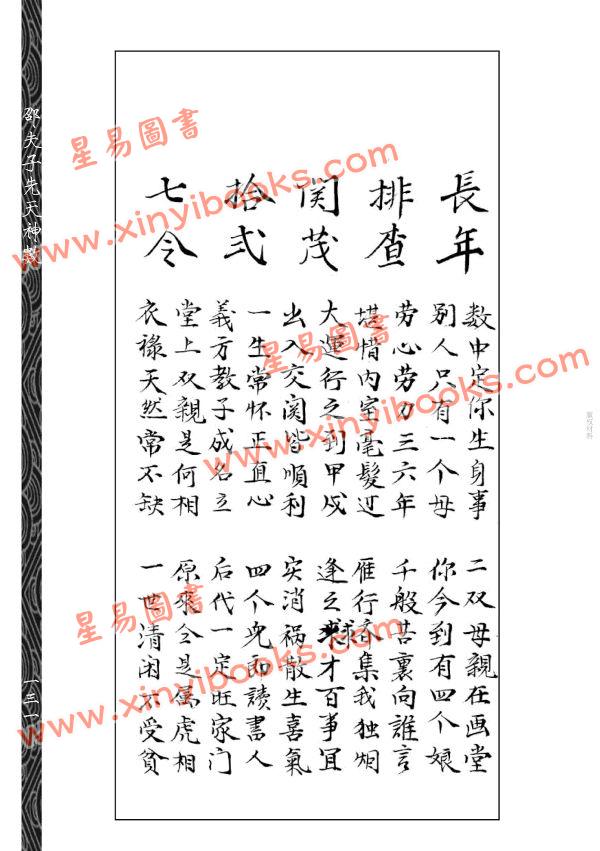 長年
排查
関茂
拾弍
七令
数中定你生身事 二双母親在画堂
别人只有一个母 你今到有四个娘
劳心劳力三六年 千般苦裏向誰言
堪惜内室毫髮 雁行齐集我独
大運行之到甲戍 逢之才百事宜
出入交関皆順利 灾消祸散生喜氣
一生常怀正直心 四个児郎讀書人
義方教子成名立 后代一定旺家门
堂上双親是何相 原來令是属虎相
衣祿天然常不缺 一世清闲不受貧
邵夫子先天神數
一三一
版权材料
星易圖書
www.xinyibooks.com
星易圖書
www.xinyibooks.com
星易圖書
www.xinyibooks.com